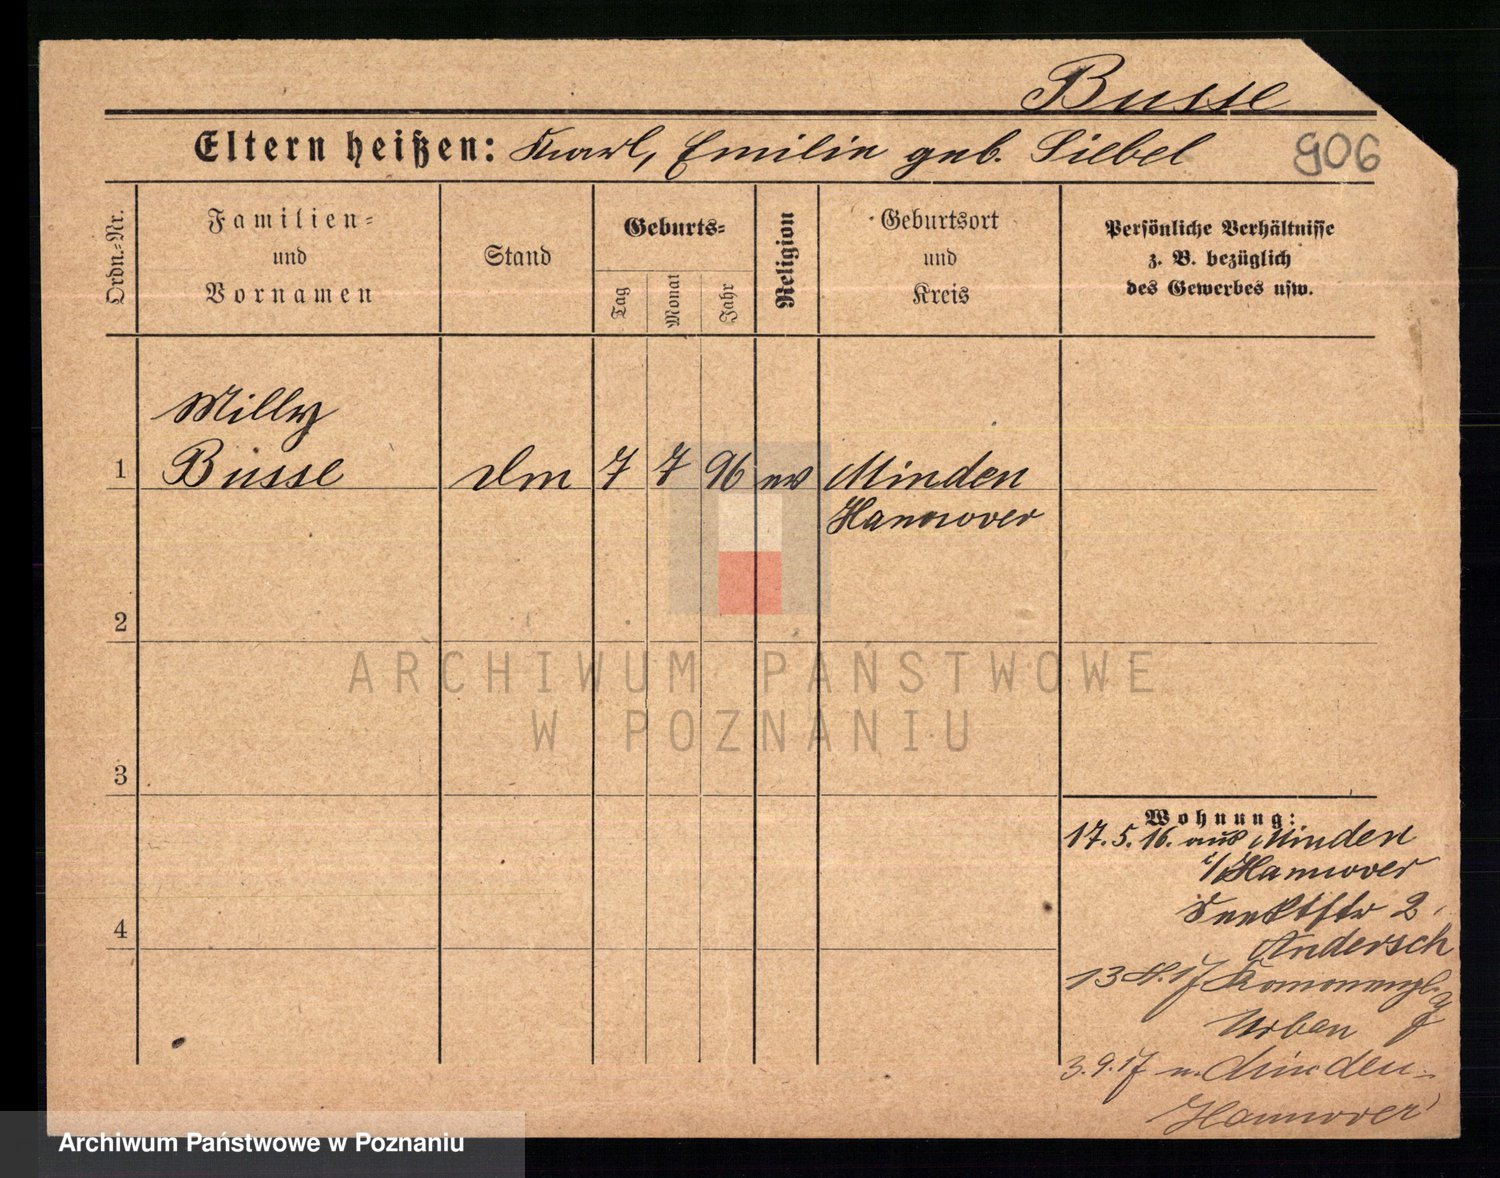 Busse
Eltern heißen: Karl, Emilie geb. Siebel
906
Ordn.=Nr.
Familien=
und
Vornamen
Stand
Geburts=
Tag
Monat
Jahr
Religion
Geburtsort
und
Kreis
Persönliche Verhältnisse
z. B. bezüglich
des Gewerbes usw.
Milly
1 Busse 7 7 96 ev Minden
Hannover
2
3
4
Wohnung:
17.5.16. aus Minden
i/Hannover
2
Andersch
Urban
3.9.17 n. Minden-
Hannover
ARCHIWUM PAŃSTWOWE
W POZNANIU
Archiwum Państwowe w Poznaniu